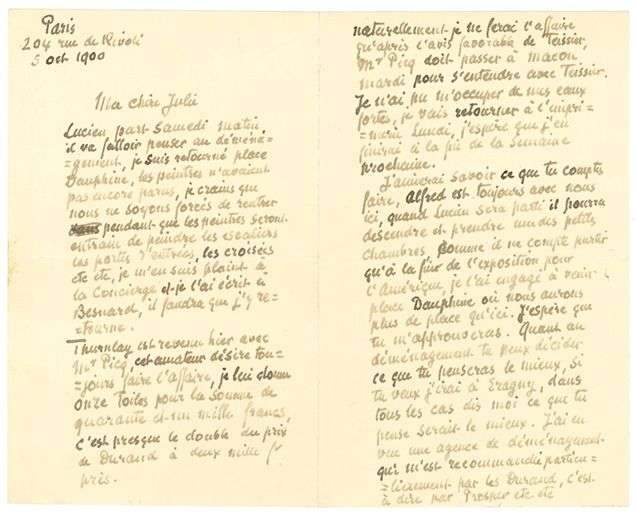 Paris
204 rue de Rivoli
5 oct 1900
Ma chère Julie
Lucien part samedi matin,
il va falloir penser au déména=
=gement, je suis retourné place
Dauphine, les peintres n'avaient
pas encore parus, je crains que
nous ne soyons forcés de rentrer
pendant que les peintres seront
entrain de peindre les escaliers
les portes d'entrées, les croisées
etc etc, je m'en suis plaint à
la Concierge et je l'ai écrit à
Besnard, il faudra que j'y re=
=tourne.
est revenu hier avec
Mr Picq cet amateur désire tou=
=jours faire l'affaire, je lui donne
onze toiles pour la somme de
quarante et un mille francs,
c'est presque le double du prix
de Durand à deux mille fr
près.
naturellement je ne ferai l'affaire
qu'après l'avis favorable de Teissier,
Mr Picq doit passer à macon
mardi pour s'entendre avec Teissier.
Je n'ai pu m'occuper de mes eaux
fortes, je vais retourner à l'impri=
=merie Lundi, j'espère que j'en
finirai à la fin de la semaine
prochaine.
J'aimerai savoir ce que tu comptes
faire, Alfred est toujours avec nous
ici, quand Lucien sera parti il pourra
descendre et prendre une des petits
chambres comme il ne compte partir
qu'à la fin de l'exposition pour
l'Amérique, je l'ai engagé à venir
place Dauphine où nous aurons
plus de place qu'ici. J'espère que
tu m'approuveras. Quant au
déménagement tu peux décider
ce que tu penseras le mieux, si
tu veux j'irai à Eragny, dans
tous les cas dis moi ce que tu
pense serait le mieux. J'ai en
vue une agence de déménagement
qui m'est recommandée particu=
=lièrement par les Durand, c'est
à dire par Prosper etc etc